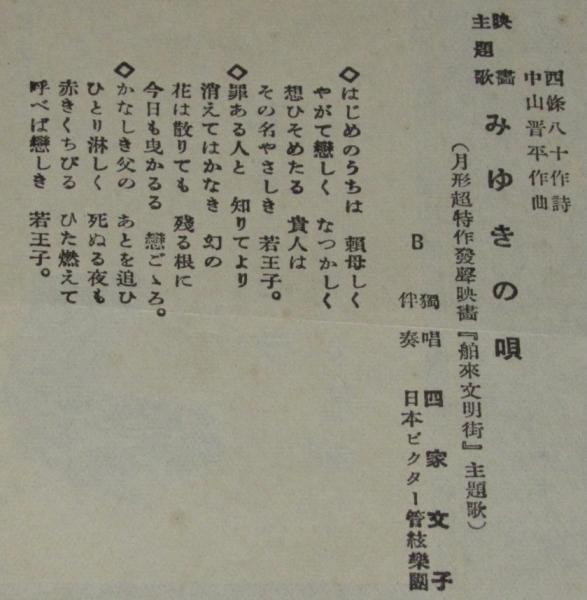 西條八十作詩
中山晋平作曲
映畫主題歌 みゆきの唄
(月形超特作發聲映畫『舶來文明街』主題歌)
B 獨唱 四家文子
伴奏 日本ビクター管絃樂團
◇はじめのうちは 賴母しく
やがて戀しく なつかしく
想ひそめたる 貴人は
その名やさしき 若王子。
◇罪ある人と 知りてより
消えてはかなき 幻の
花は散りても 殘る根に
今日も曳かるる 戀ごゝろ。
◇かなしき父の あとを追ひ
ひとり淋しく 死ぬる夜も
赤きくちびる ひた燃えて
呼べば戀しき 若王子。